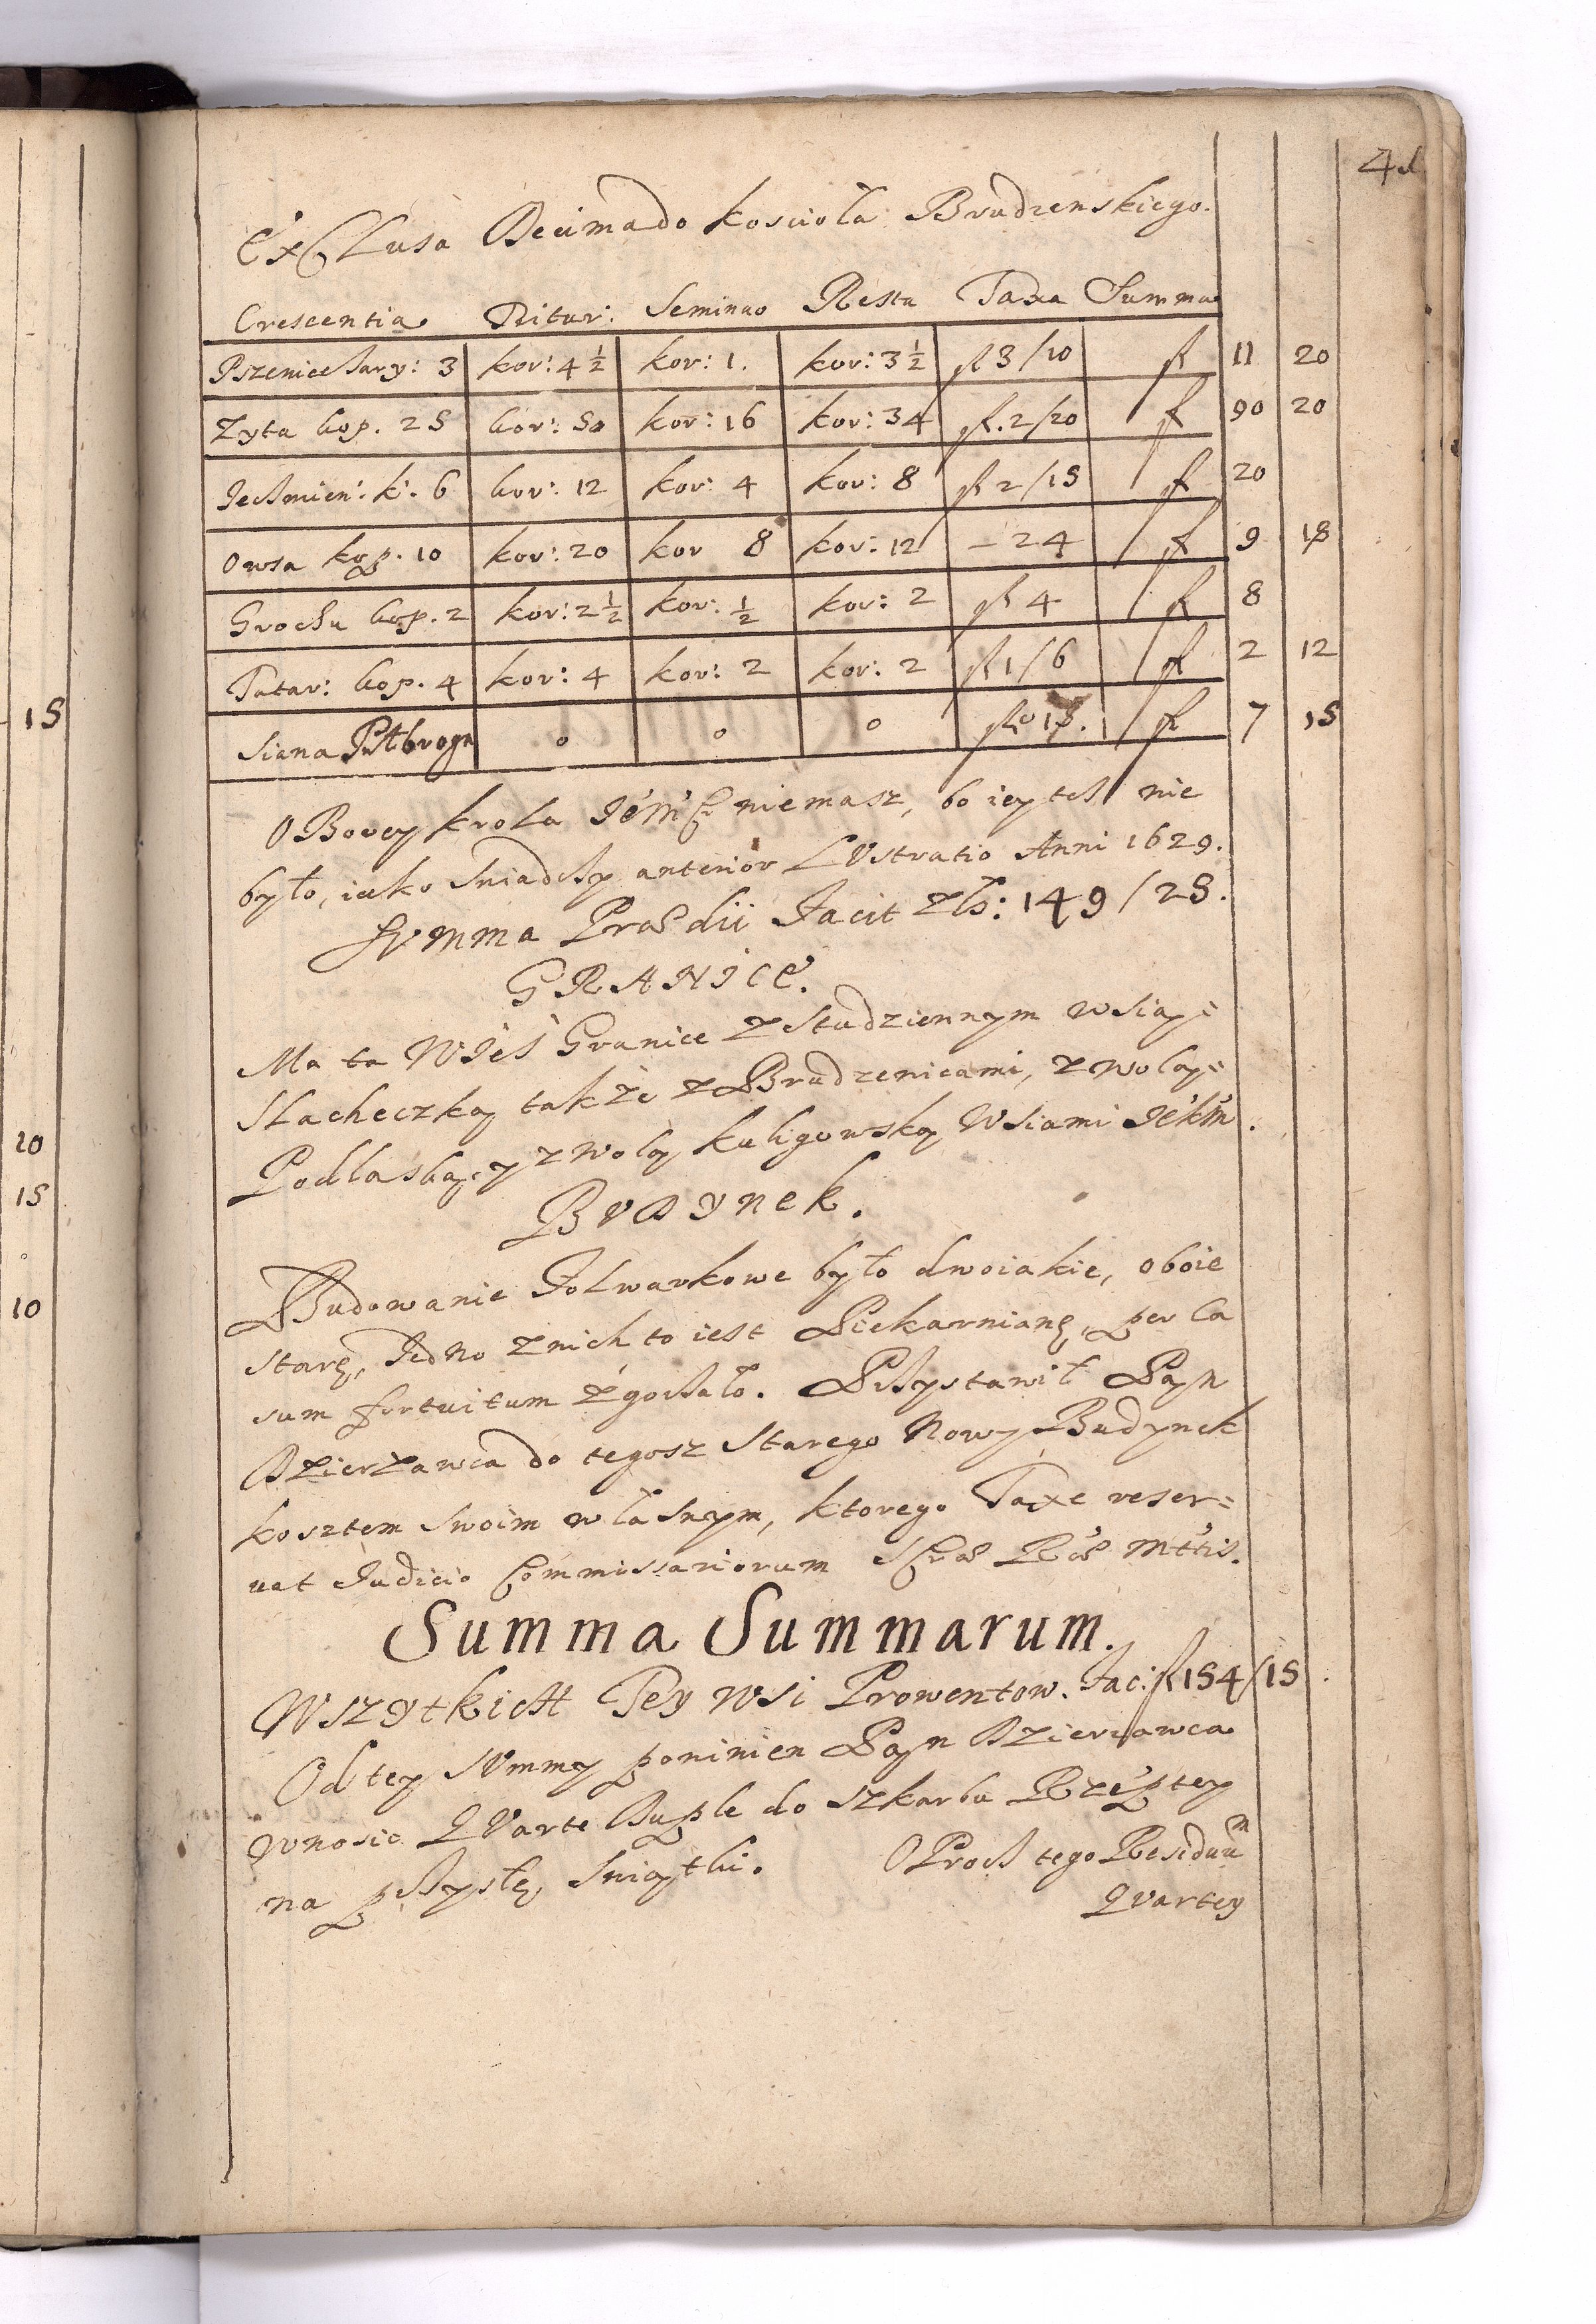 4
ExClusa Decima do koscioła Brudzenskiego.
Crescentia Ditur: Seminao Resta Taxa Summa
Pszenice kary: 3 kor: 4 ½ kor: 1. kor: 3 ½ fl 3/10 fl 11 20
Zyta kop. 25 kor: 50 kor: 16 kor: 34 fl. 2/20 fl 90 20
Jechmien: k. 6 kor: 12 kor: 4 kor: 8 fl 2/15 fl 20
Owsa kop. 10 kor: 20 kor 8 kor: 12 – 24 fl 9 18
Grochu kop. 2 kor: 2 ½ kor: ½ kor: 2 fl 4 fl 8
Tatar: kop. 4 kor: 4 kor: 2 kor: 2 fl 1/6 fl 2 12
Siana 0 0 0 fl 7 15
OBorey krola niemasz, bo iey tesz nie
było, iako swiadczy anterior LVstratio Anni 1629.
SVmma Praedii Facit Zło: 149/25.
GRANICE.
Ma ta WIes Granice z Studziennym wsią
Slachecką także z Brudzenicami, z wolą
Podlaską, y z wolą kuligowską Wsiami
BVDynek.
Budowanie Folwarkowe było dwoiakie, oboie
stare, Jedno z nich to iest Piekarniane, per Ca
sum fortuitum zgorzało. Przystawił Pan
Dzierzawca do tegosz Starego Nowy Budynek
kosztem swoim własnym, ktorego Taxe reser=
uat Judicio Commissariorum Mttis.
Summa Summarum.
WszytkicH Tey wsi Prowentow. Fac: fl 154/15
Od tey SVmmy powinien Pan Dzierzawca
wnosic QVarte Duple do szkarbu Rzeptey
na przyszłe Swiątki. OProcz tego Residuum
Qvartey
15
20
15
10